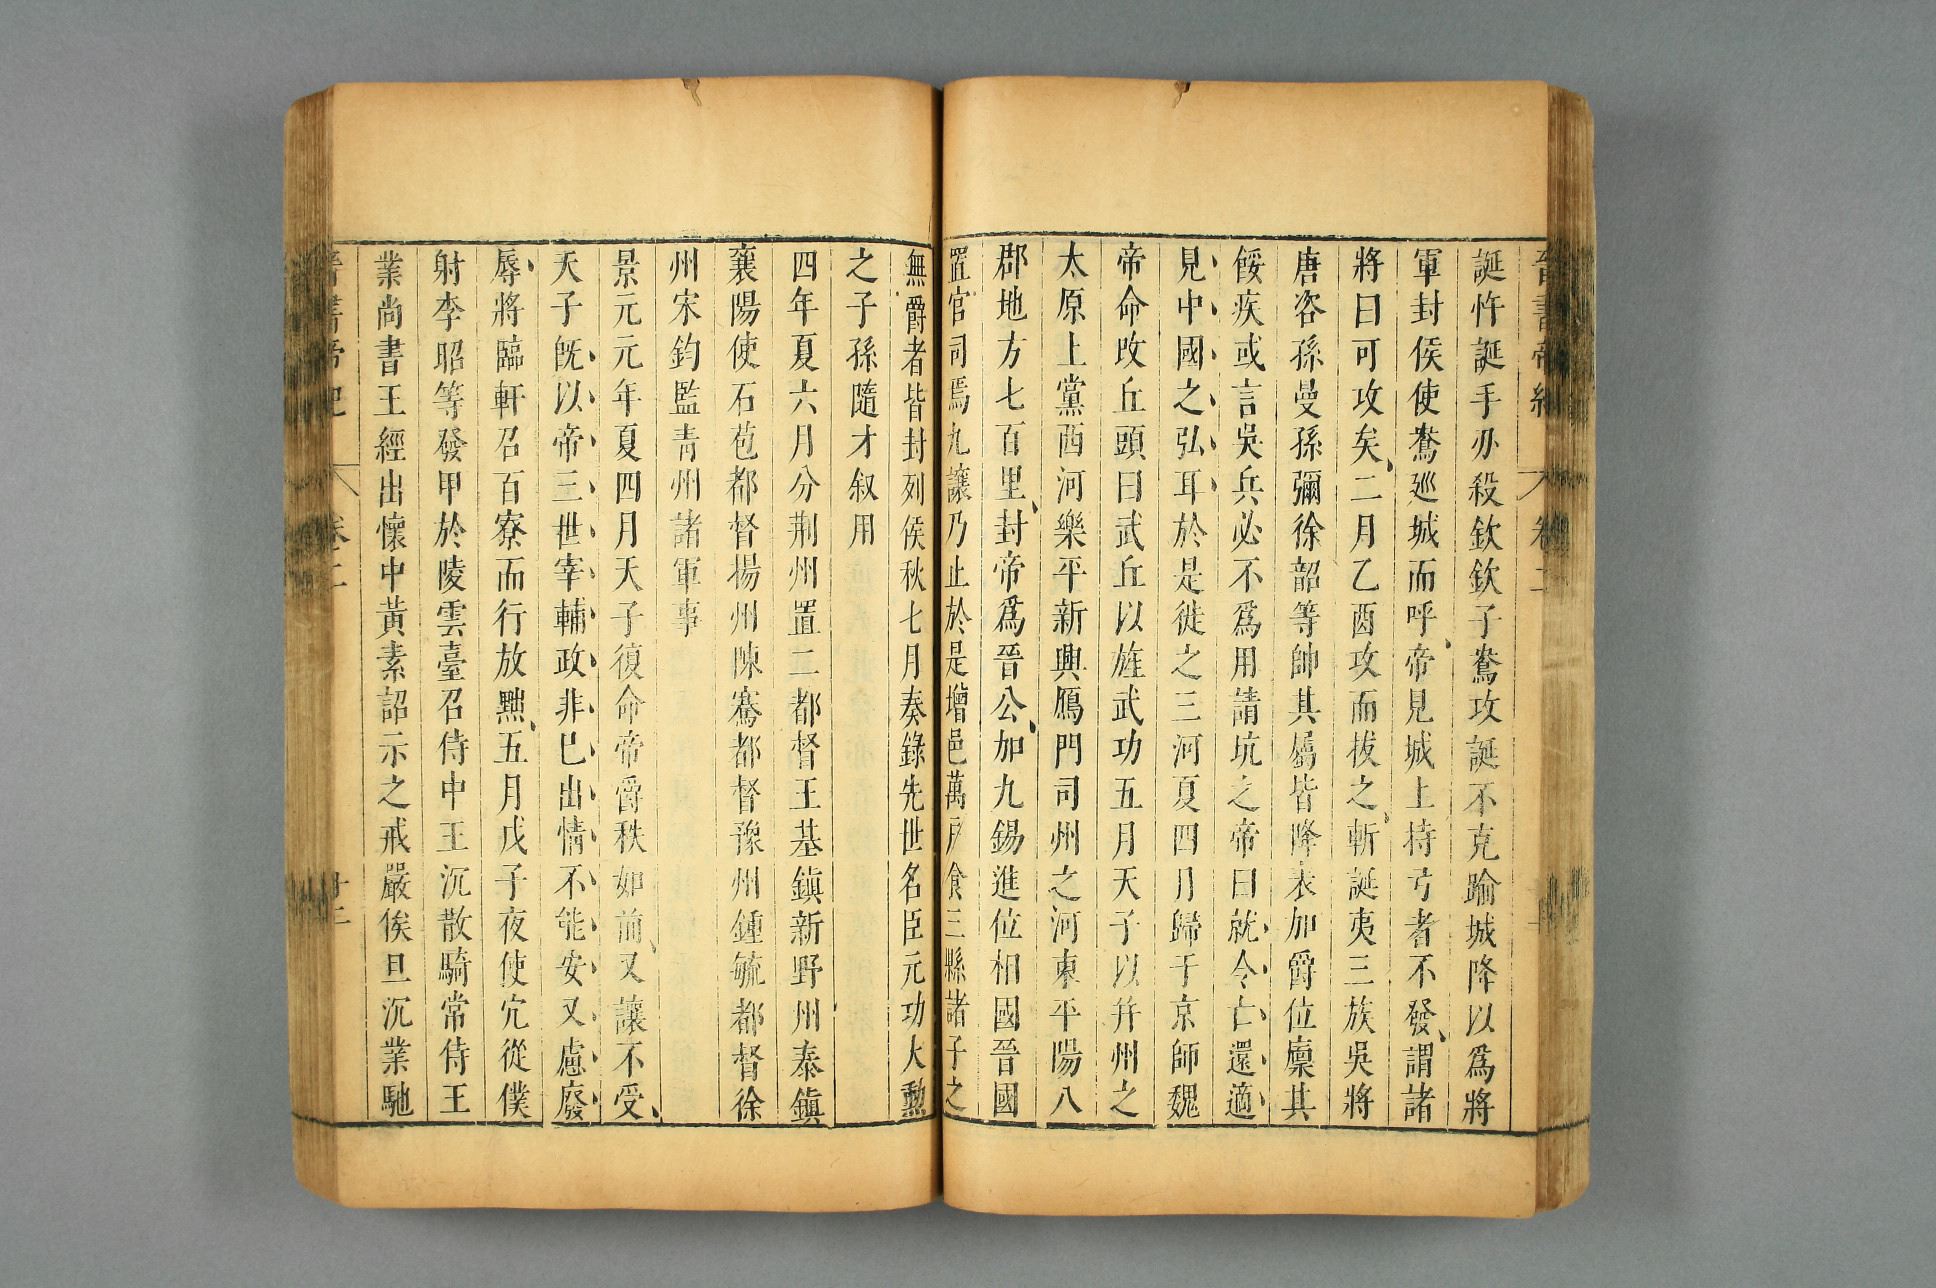 晉書帝紀 卷二
誕忤誕手刃殺欽欽子鴦攻誕不克踰城降以爲將
軍封侯使鴦廵城而呼帝見城上持弓者不發謂諸
將曰可攻矣二月乙酉攻而拔之斬誕夷三族吳將
唐咨孫曼孫彌徐韶等帥其屬皆降表加爵位廩其
餒疾或言吳兵必不爲用請坑之帝曰就令亡還適
見中國之弘耳於是徙之三河夏四月歸于京師魏
帝命改丘頭曰武丘以旌武功五月天子以幷州之
太原上黨西河樂平新興鴈門司州之河東平陽八
郡地方七百里封帝爲晉公加九錫進位相國晉國
置官司焉九讓乃止於是增邑萬戶食三縣諸子之
無爵者皆封列侯秋七月奏錄先世名臣元功大勲
之子孫隨才叙用
四年夏六月分荆州置二都督王基鎮新野州泰鎮
襄陽使石苞都督揚州陳騫都督豫州鍾毓都督徐
州宋鈞監青州諸軍事
景元元年夏四月天子復命帝爵秩如前又讓不受
天子旣以帝三世宰輔政非已出情不能安又慮廢
辱將臨軒召百寮而行放黜五月戊子夜使宂從僕
射李昭等發甲於陵雲臺召侍中王沉散騎常侍王
業尚書王經出懷中黃素詔示之戒嚴俟旦沉業馳
晉書帝紀 卷二 十二